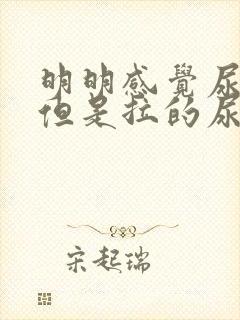 明明感覺尿
但是拉的尿
宋起瑞